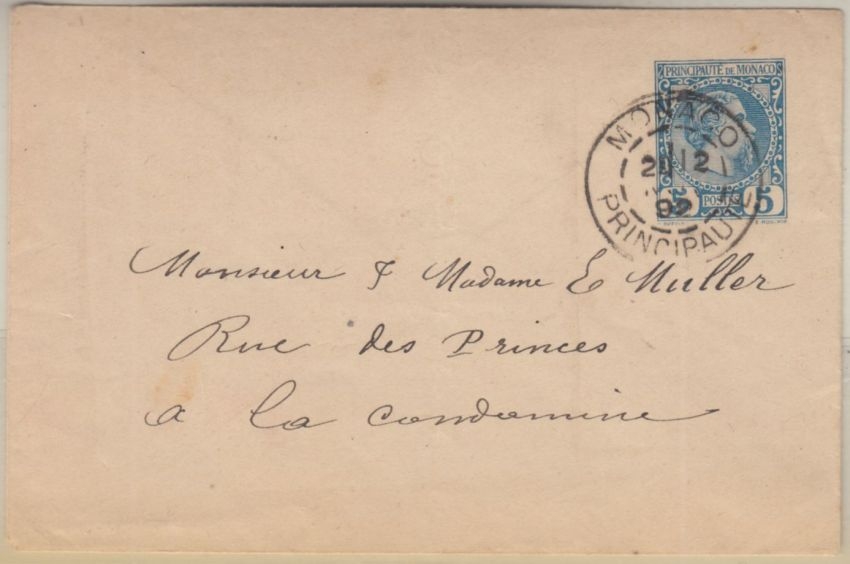 PRINCIPAUTÉ DE MONACO
MONACO
12
92
PRINCIPAUTÉ
5 POSTES 5
Monsieur & Madame E Muller
Rue des Princes
a La Condamine